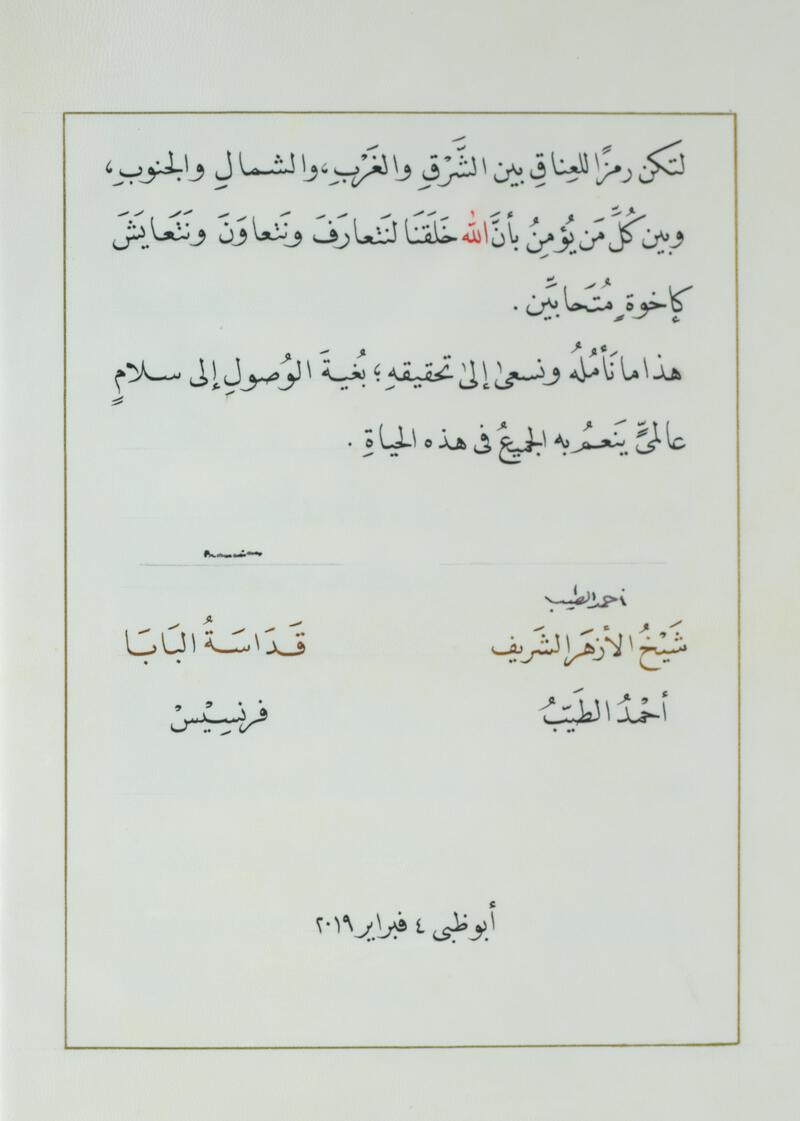 لتكن رمزًا للعِناقِ بين الشَّرْقِ والغَرْبِ، والشمالِ والجنوبِ،
وبين كُلِّ مَن يُؤمِنُ بأنَّ اللهَ خَلَقَنَا لنَتعارَفَ ونَتعاوَنَ ونَتَعايَشَ
كإخوةٍ مُتَحابِّين .
هذا ما نَأمُلُهُ ونسعىٰ إلىٰ تحقيقهِ؛ بُغيةَ الوُصولِ إلى سلامٍ
عالمىٍّ يَنعمُ به الجميعُ فى هذه الحياةِ .
أحمد الطيب
شَيْخُ الأزهَرِ الشَريف قَدَاسَةُ البَابَا
أحْمَدُ الطَيّبُ فرنسِيْسْ
أبو ظبى ٤ فبراير ٢٠١٩